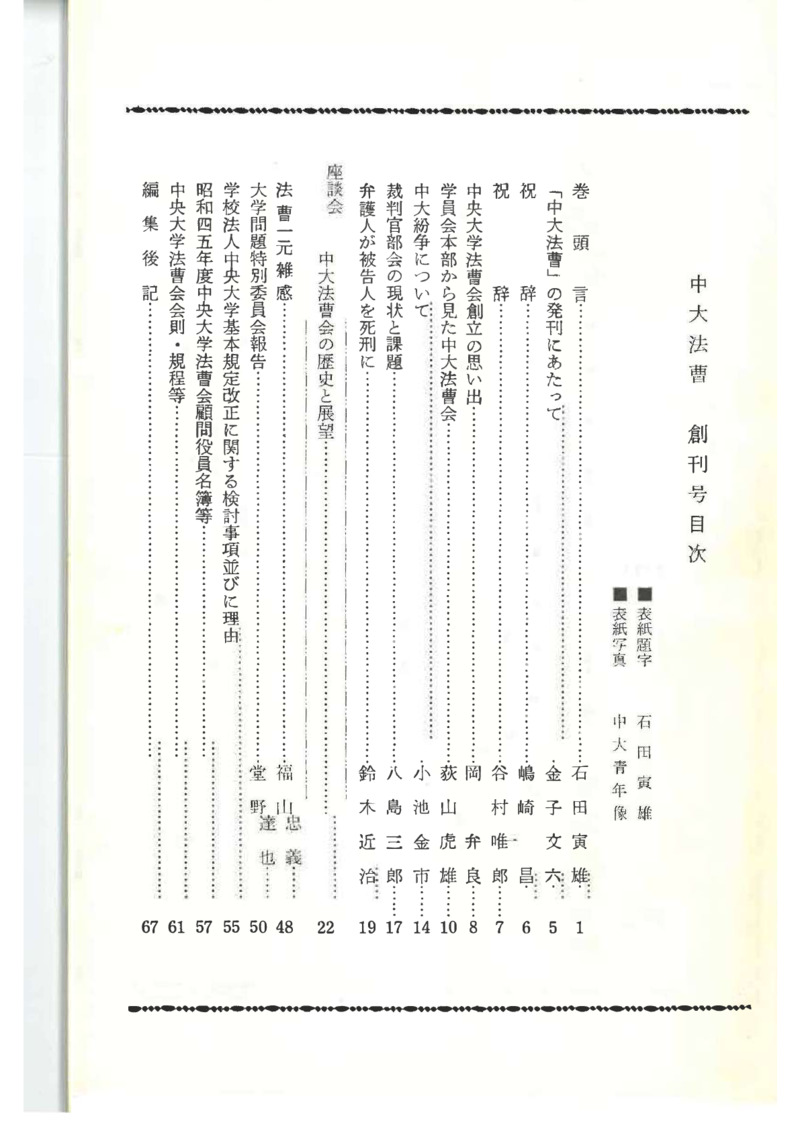 中大法曹 創刊号目次
■表紙題字 石田寅雄
■表紙写真 中大青年像
巻頭言……石田寅雄……1
「中大法曹」の発刊にあたって……金子文六……5
祝辞……嶋崎昌……6
祝辞……谷村唯一郎……7
中央大学法曹会創立の思い出……岡弁良……8
学員会本部から見た中大法曹会……荻山虎雄……10
中大紛争について……小池金市……14
裁判官部会の現状と課題……八島三郎……17
弁護人が被告人を死刑に……鈴木近治……19
座談会 中大法曹会の歴史と展望……22
法曹一元雑感……福山忠義……48
大学問題特別委員会報告……堂野達也……50
学校法人中央大学基本規定改正に関する検討事項並びに理由……55
昭和四五年度中央大学法曹会顧問役員名簿等……57
中央大学法曹会会則・規程等……61
編集後記……67